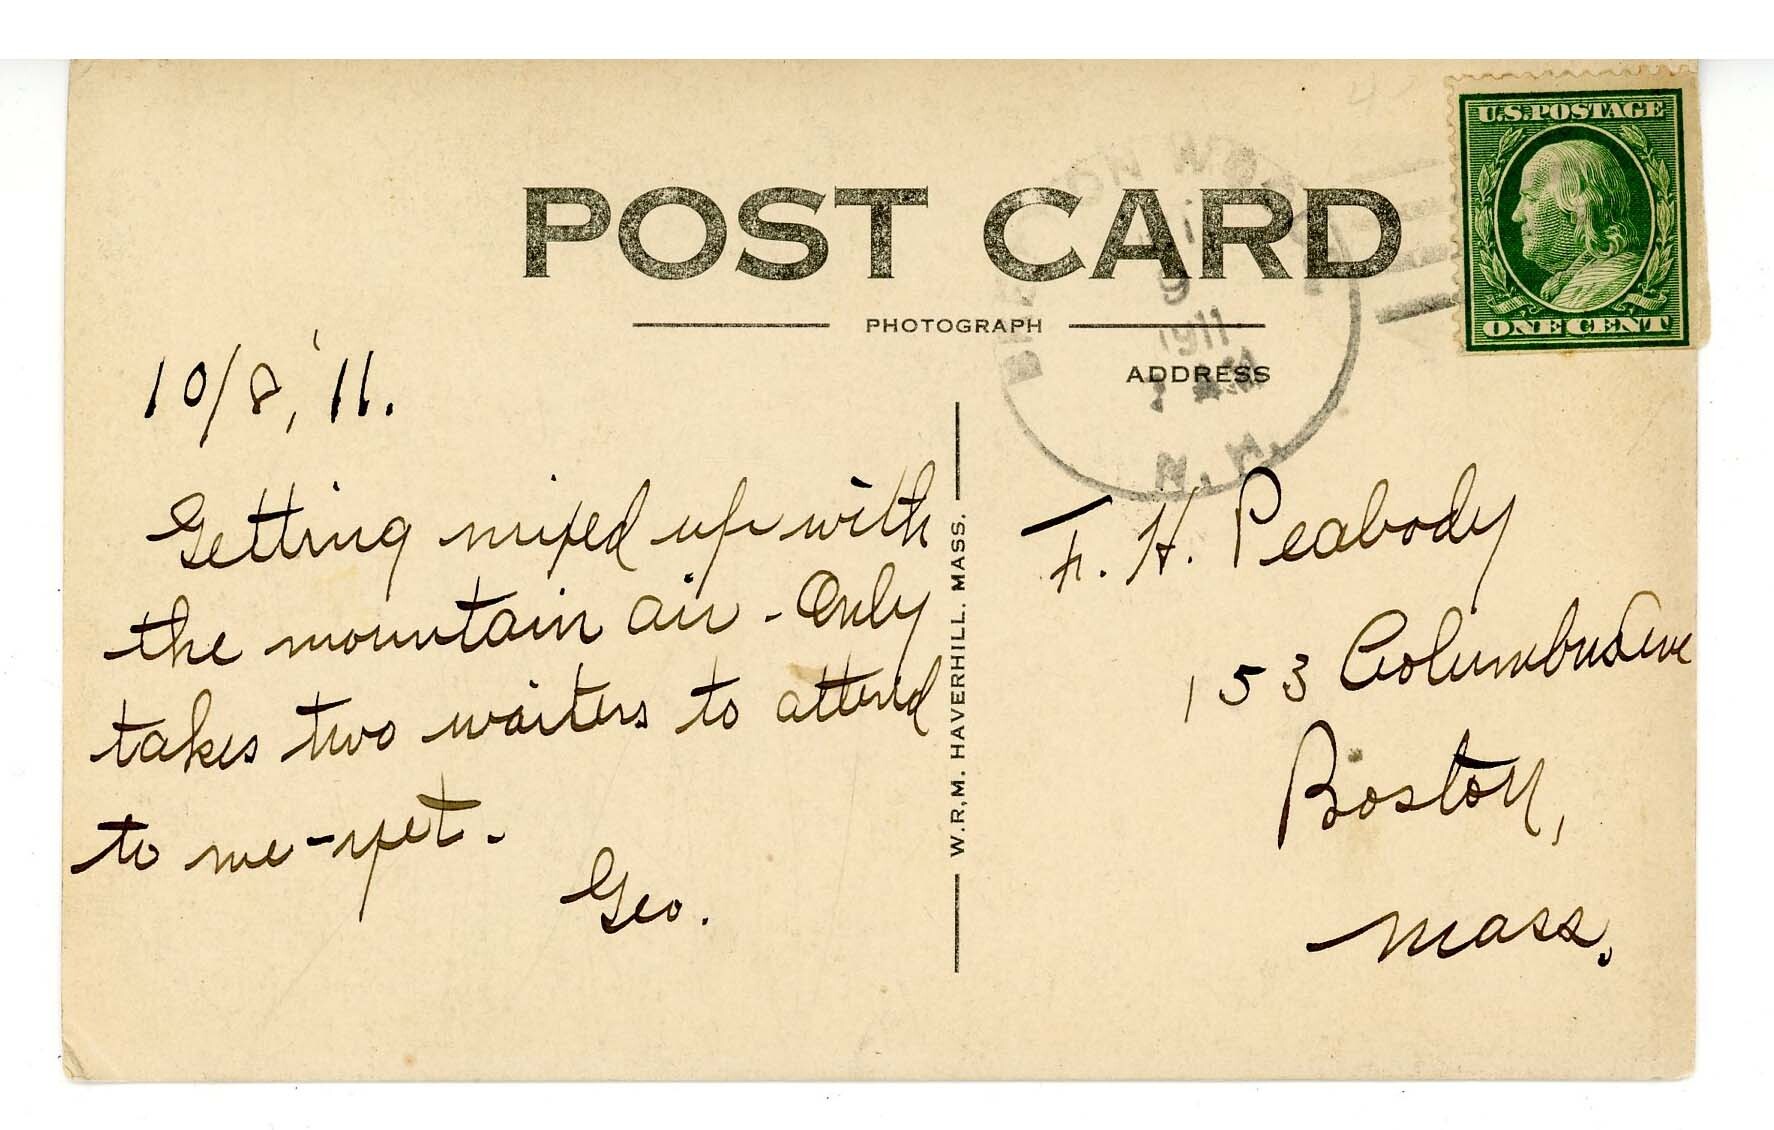 U.S. POSTAGE
ONE CENT
POST CARD
PHOTOGRAPH
ADDRESS
9
1911
N.H.
10/8, '11.
Getting mixed up with
the mountain air - Only
takes two waiters to attend
to me - yet.
Geo.
W.R.M. HAVERHILL. MASS.
F. H. Peabody
153 Columbus Ave
Boston,
Mass.